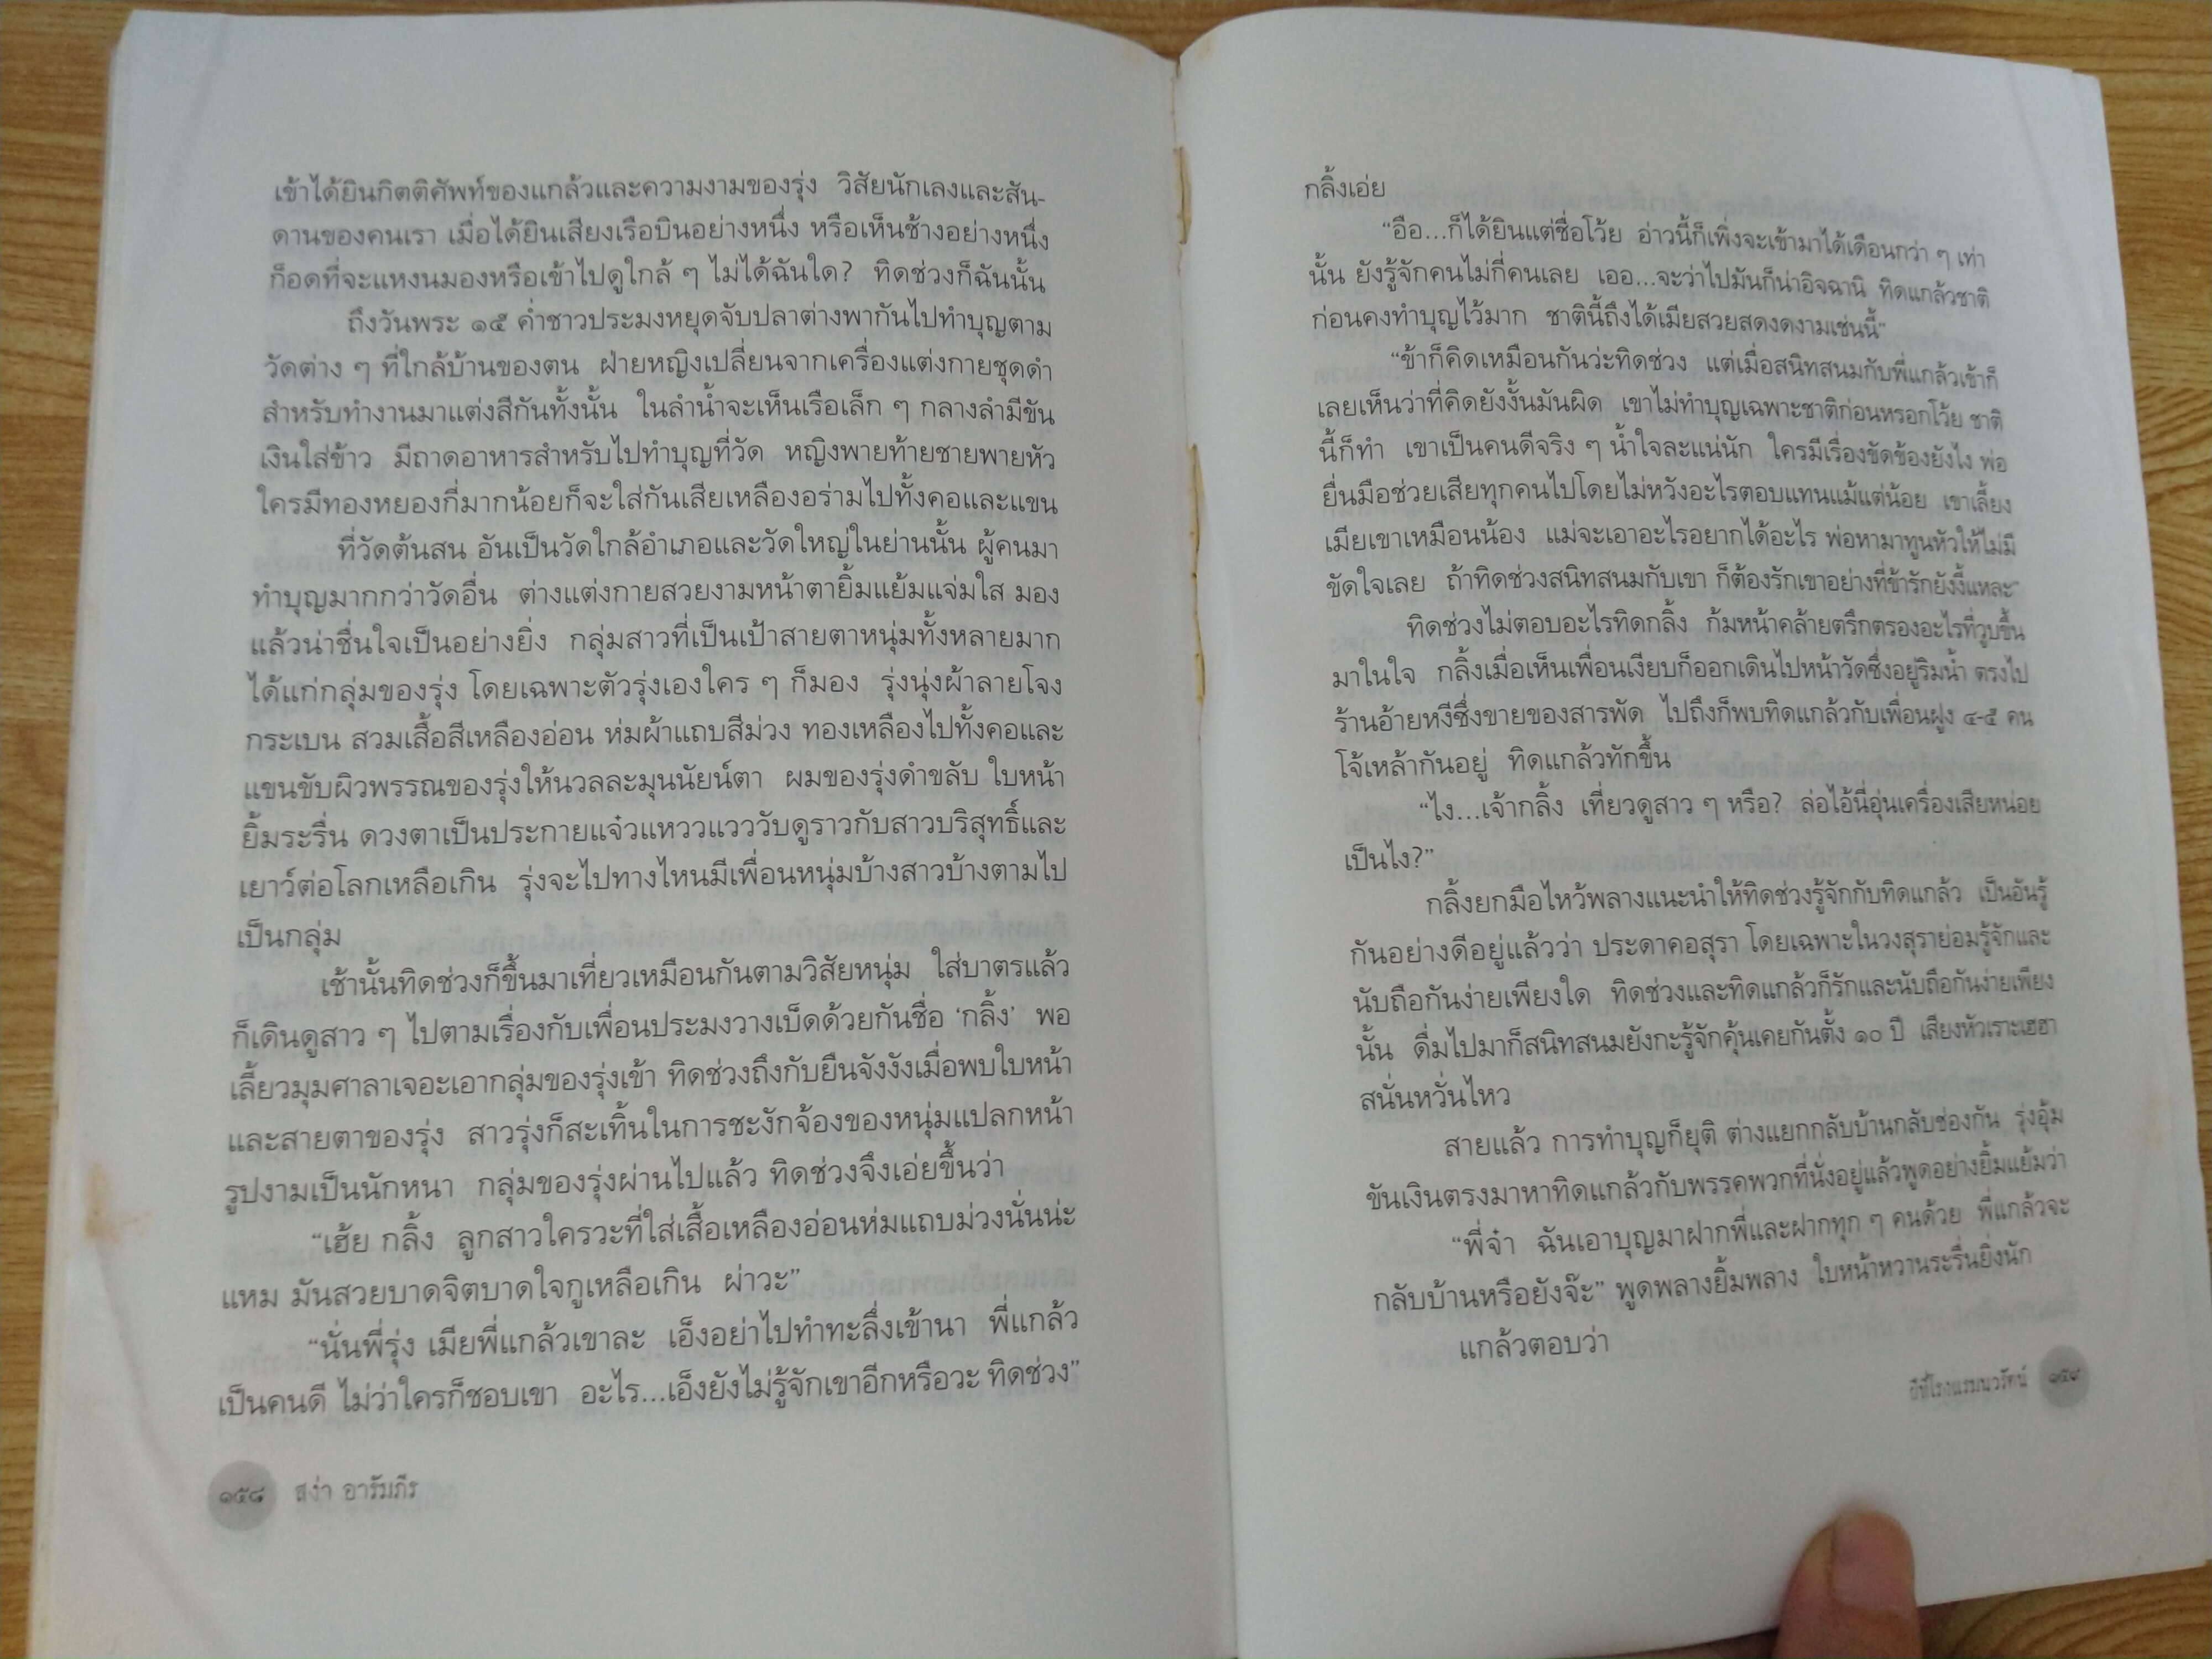 เข้าได้ยินกิตติศัพท์ของแกล้วและความงามของรุ่ง วิสัยนักเลงและสัน-
ดานของคนเรา เมื่อได้ยินเสียงเรือบินอย่างหนึ่ง หรือเห็นช้างอย่างหนึ่ง
ก็อดที่จะแหงนมองหรือเข้าไปดูใกล้ ๆ ไม่ได้ฉันใด? ทิดช่วงก็ฉันนั้น
ถึงวันพระ ๑๕ ค่ำชาวประมงหยุดจับปลาต่างพากันไปทำบุญตาม
วัดต่าง ๆ ที่ใกล้บ้านของตน ฝ่ายหญิงเปลี่ยนจากเครื่องแต่งกายชุดดำ
สำหรับทำงานมาแต่งสีกันทั้งนั้น ในลำน้ำจะเห็นเรือเล็ก ๆ กลางลำมีขัน
เงินใส่ข้าว มีถาดอาหารสำหรับไปทำบุญที่วัด หญิงพายท้ายชายพายหัว
ใครมีทองหยองกี่มากน้อยก็จะใส่กันเสียเหลืองอร่ามไปทั้งคอและแขน
ที่วัดต้นสน อันเป็นวัดใกล้อำเภอและวัดใหญ่ในย่านนั้น ผู้คนมา
ทำบุญมากกว่าวัดอื่น ต่างแต่งกายสวยงามหน้าตายิ้มแย้มแจ่มใส มอง
แล้วน่าชื่นใจเป็นอย่างยิ่ง กลุ่มสาวที่เป็นเป้าสายตาหนุ่มทั้งหลายมาก
ได้แก่กลุ่มของรุ่ง โดยเฉพาะตัวรุ่งเองใคร ๆ ก็มอง รุ่งนุ่งผ้าลายโจง
กระเบน สวมเสื้อสีเหลืองอ่อน ห่มผ้าแถบสีม่วง ทองเหลืองไปทั้งคอและ
แขนขับผิวพรรณของรุ่งให้นวลละมุนนัยน์ตา ผมของรุ่งดำขลับ ใบหน้า
ยิ้มระรื่น ดวงตาเป็นประกายแจ๋วแหววแวววับดูราวกับสาวบริสุทธิ์และ
เยาว์ต่อโลกเหลือเกิน รุ่งจะไปทางไหนมีเพื่อนหนุ่มบ้างสาวบ้างตามไป
เป็นกลุ่ม
เช้านั้นทิดช่วงก็ขึ้นมาเที่ยวเหมือนกันตามวิสัยหนุ่ม ใส่บาตรแล้ว
ก็เดินดูสาว ๆ ไปตามเรื่องกับเพื่อนประมงวางเบ็ดด้วยกันชื่อ ‘กลิ้ง’ พอ
เลี้ยวมุมศาลาเจอะเอากลุ่มของรุ่งเข้า ทิดช่วงถึงกับยืนจังงังเมื่อพบใบหน้า
และสายตาของรุ่ง สาวรุ่งก็สะเทิ้นในการชะงักจ้องของหนุ่มแปลกหน้า
รูปงามเป็นนักหนา กลุ่มของรุ่งผ่านไปแล้ว ทิดช่วงจึงเอ่ยขึ้นว่า
“เฮ้ย กลิ้ง ลูกสาวใครวะที่ใส่เสื้อเหลืองอ่อนห่มแถบม่วงนั่นน่ะ
แหม มันสวยบาดจิตบาดใจกูเหลือเกิน ผ่าวะ”
“นั่นพี่รุ่ง เมียพี่แกล้วเขาละ เอ็งอย่าไปทำทะลึ่งเข้านา พี่แกล้ว
เป็นคนดี ไม่ว่าใครก็ชอบเขา อะไร...เอ็งยังไม่รู้จักเขาอีกหรือวะ ทิดช่วง”
๑๕๘ สง่า อารัมภีร
กลิ้งเอ่ย
“อือ...ก็ได้ยินแต่ชื่อโว้ย อ่าวนี้ก็เพิ่งจะเข้ามาได้เดือนกว่า ๆ เท่า
นั้น ยังรู้จักคนไม่กี่คนเลย เออ...จะว่าไปมันก็น่าอิจฉานิ ทิดแกล้วชาติ
ก่อนคงทำบุญไว้มาก ชาตินี้ถึงได้เมียสวยสดงดงามเช่นนี้”
“ข้าก็คิดเหมือนกันว่ะทิดช่วง แต่เมื่อสนิทสนมกับพี่แกล้วเข้าก็
เลยเห็นว่าที่คิดยังงั้นมันผิด เขาไม่ทำบุญเฉพาะชาติก่อนหรอกโว้ย ชาติ
นี้ก็ทำ เขาเป็นคนดีจริง ๆ น้ำใจละแน่นัก ใครมีเรื่องขัดข้องยังไง พ่อ
ยื่นมือช่วยเสียทุกคนไปโดยไม่หวังอะไรตอบแทนแม้แต่น้อย เขาเลี้ยง
เมียเขาเหมือนน้อง แม่จะเอาอะไรอยากได้อะไร พ่อหามาทูนหัวให้ไม่มี
ขัดใจเลย ถ้าทิดช่วงสนิทสนมกับเขา ก็ต้องรักเขาอย่างที่ข้ารักยังงี้แหละ”
ทิดช่วงไม่ตอบอะไรทิดกลิ้ง ก้มหน้าคล้ายตรึกตรองอะไรที่วูบขึ้น
มาในใจ กลิ้งเมื่อเห็นเพื่อนเงียบก็ออกเดินไปหน้าวัดซึ่งอยู่ริมน้ำ ตรงไป
ร้านอ้ายหงีซึ่งขายของสารพัด ไปถึงก็พบทิดแกล้วกับเพื่อนฝูง ๔-๕ คน
โจ้เหล้ากันอยู่ ทิดแกล้วทักขึ้น
“ไง...เจ้ากลิ้ง เที่ยวดูสาว ๆ หรือ? ล่อไอ้นี่อุ่นเครื่องเสียหน่อย
เป็นไง?”
กลิ้งยกมือไหว้พลางแนะนำให้ทิดช่วงรู้จักกับทิดแกล้ว เป็นอันรู้
กันอย่างดีอยู่แล้วว่า ประดาคอสุรา โดยเฉพาะในวงสุราย่อมรู้จักและ
นับถือกันง่ายเพียงใด ทิดช่วงและทิดแกล้วก็รักและนับถือกันง่ายเพียง
นั้น ดื่มไปมาก็สนิทสนมยังกะรู้จักคุ้นเคยกันตั้ง ๑๐ ปี เสียงหัวเราะเฮฮา
สนั่นหวั่นไหว
สายแล้ว การทำบุญก็ยุติ ต่างแยกกลับบ้านกลับช่องกัน รุ่งอุ้ม
ขันเงินตรงมาหาทิดแกล้วกับพรรคพวกที่นั่งอยู่แล้วพูดอย่างยิ้มแย้มว่า
“พี่จ๋า ฉันเอาบุญมาฝากพี่และฝากทุก ๆ คนด้วย พี่แกล้วจะ
กลับบ้านหรือยังจ๊ะ” พูดพลางยิ้มพลาง ใบหน้าหวานระรื่นยิ่งนัก
แกล้วตอบว่า
ผีที่โรงแรมนวรัตน์ ๑๕๙